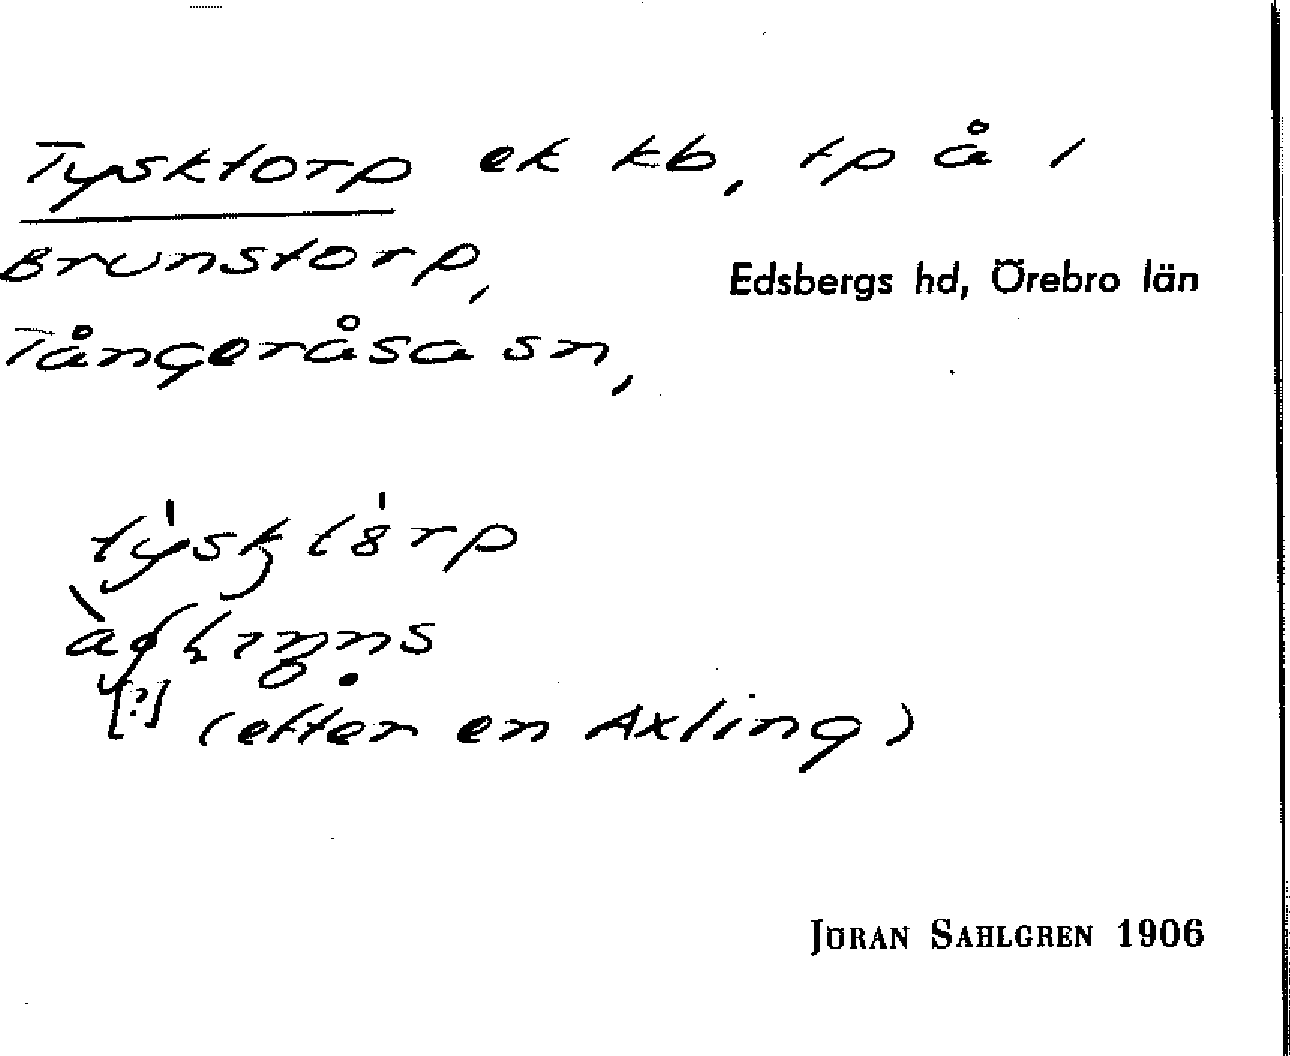 Tysktorp ek kb, tp å 1
Brunstorp,
Edsbergs hd, Örebro län
Tångeråsa sn,
[?] (efter en Axling)
JÖRAN SAHLGREN 1906